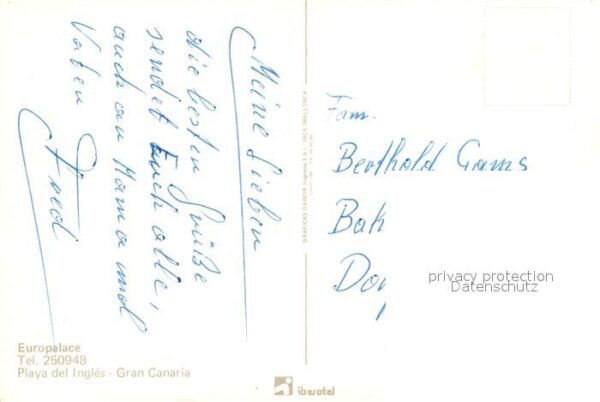 Meine Lieben
die besten Grüße
sendet Euch alle,
auch an Mama und
Vater
Fred
Fam.
Berthold Gams
Bak
Do
privacy protection
Datenschutz
Europalace
Tel. 250948
Playa del Inglés - Gran Canaria
iberotel